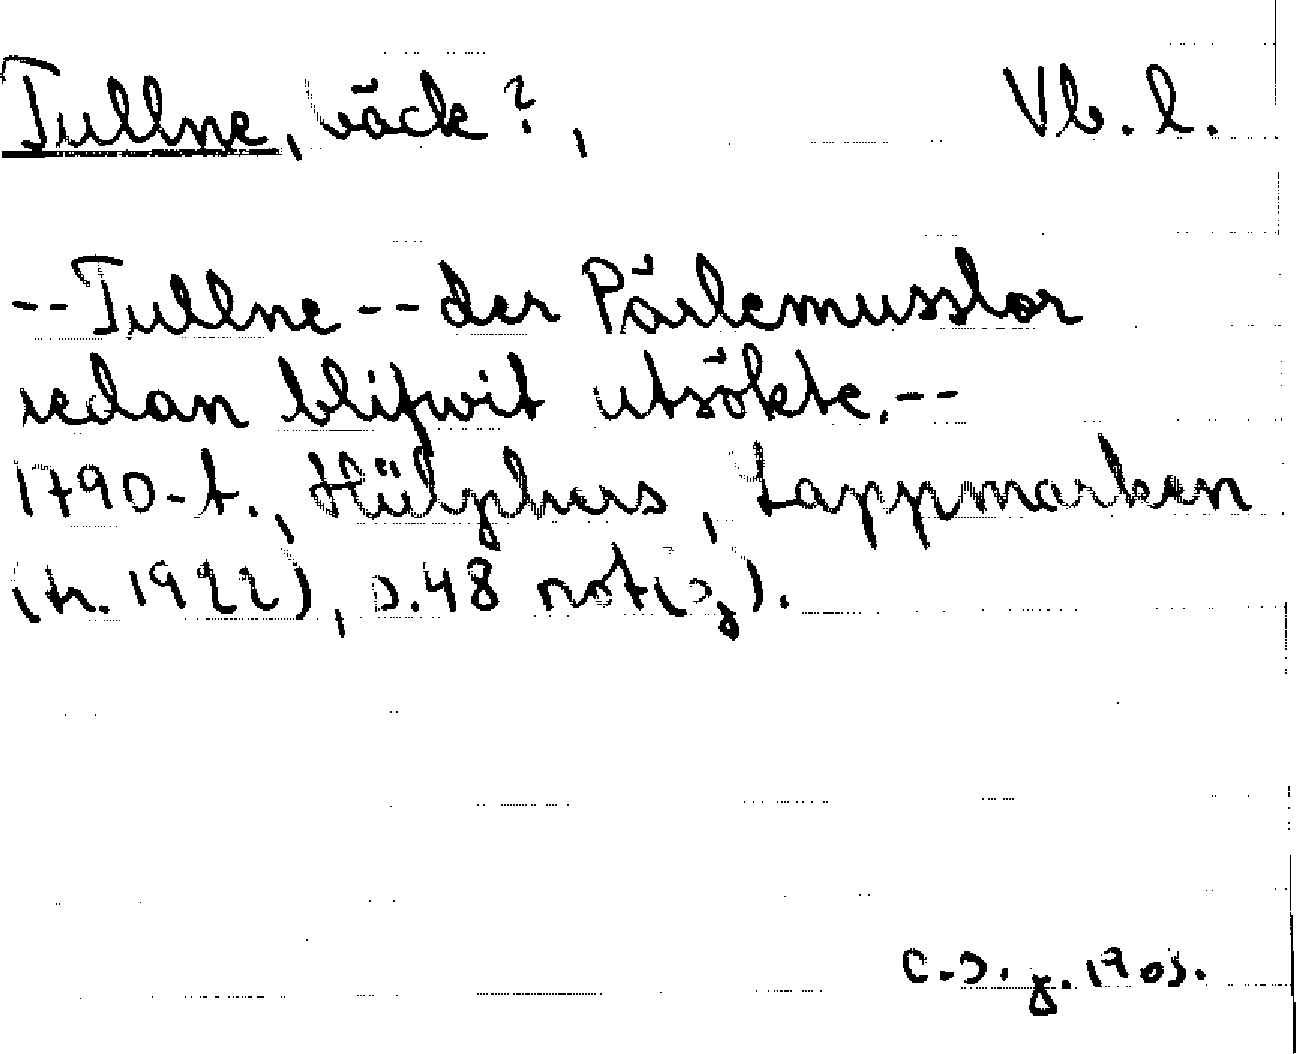 Tullne, bäck?, Vb. l.
-- Tullne -- der Pärlemusslor
redan blifwit utsökte. --
1790-t., Hülphers, Lappmarken
(tr. 1922), s. 48 not(z).